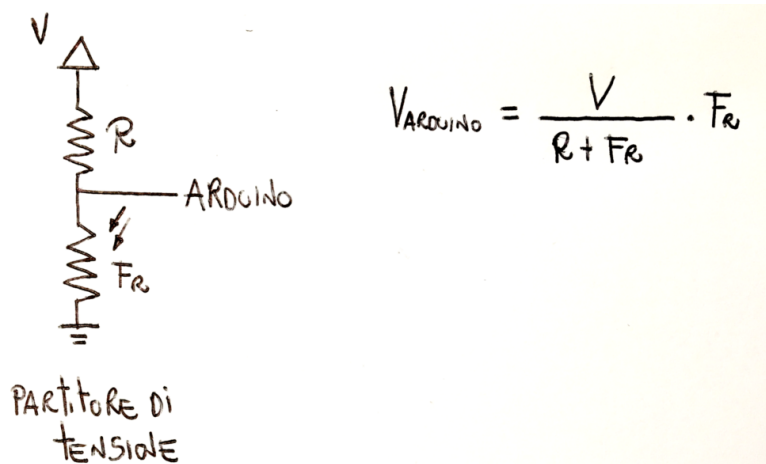 V
R
ARDUINO
FR
PARTITORE DI
TENSIONE
VARDUINO = V / R + FR . FR